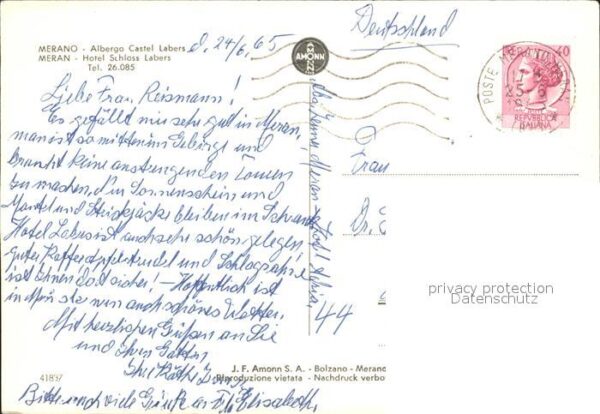 MERANO - Albergo Castel Labers
MERAN - Hotel Schloss Labers
Tel. 26.085
d. 24/6. 65
Liebe Frau Reismann!
Es gefällt mir sehr gut in Meran,
man ist so mitten im Gebirge und
braucht keine anstrengenden Touren
zu machen, d. in Sonnenschein und
Mantel und Strickjacke bleiben im Schrank
Hotel Labers ist auch sehr schön gelegen,
guter Kaffee, Apfelstrudel und Schlagsahne
ist Ihnen dort sicher! - Hoffentlich ist
in M nun auch schönes Wetter.
Mit herzlichen Grüßen an Sie
und Ihren Gatten
Ihre Käthe
Bitte auch viele Grüße an Frl. Elisabeth
41837
AMONN
MERAN
J. F. Amonn S. A. - Bolzano - Meranc
Riproduzione vietata - Nachdruck verbo
Deutschland
POSTE MERANO
25 6
40
REPVBBLICA
ITALIANA
Frau
Dr.
44
privacy protection
Datenschutz